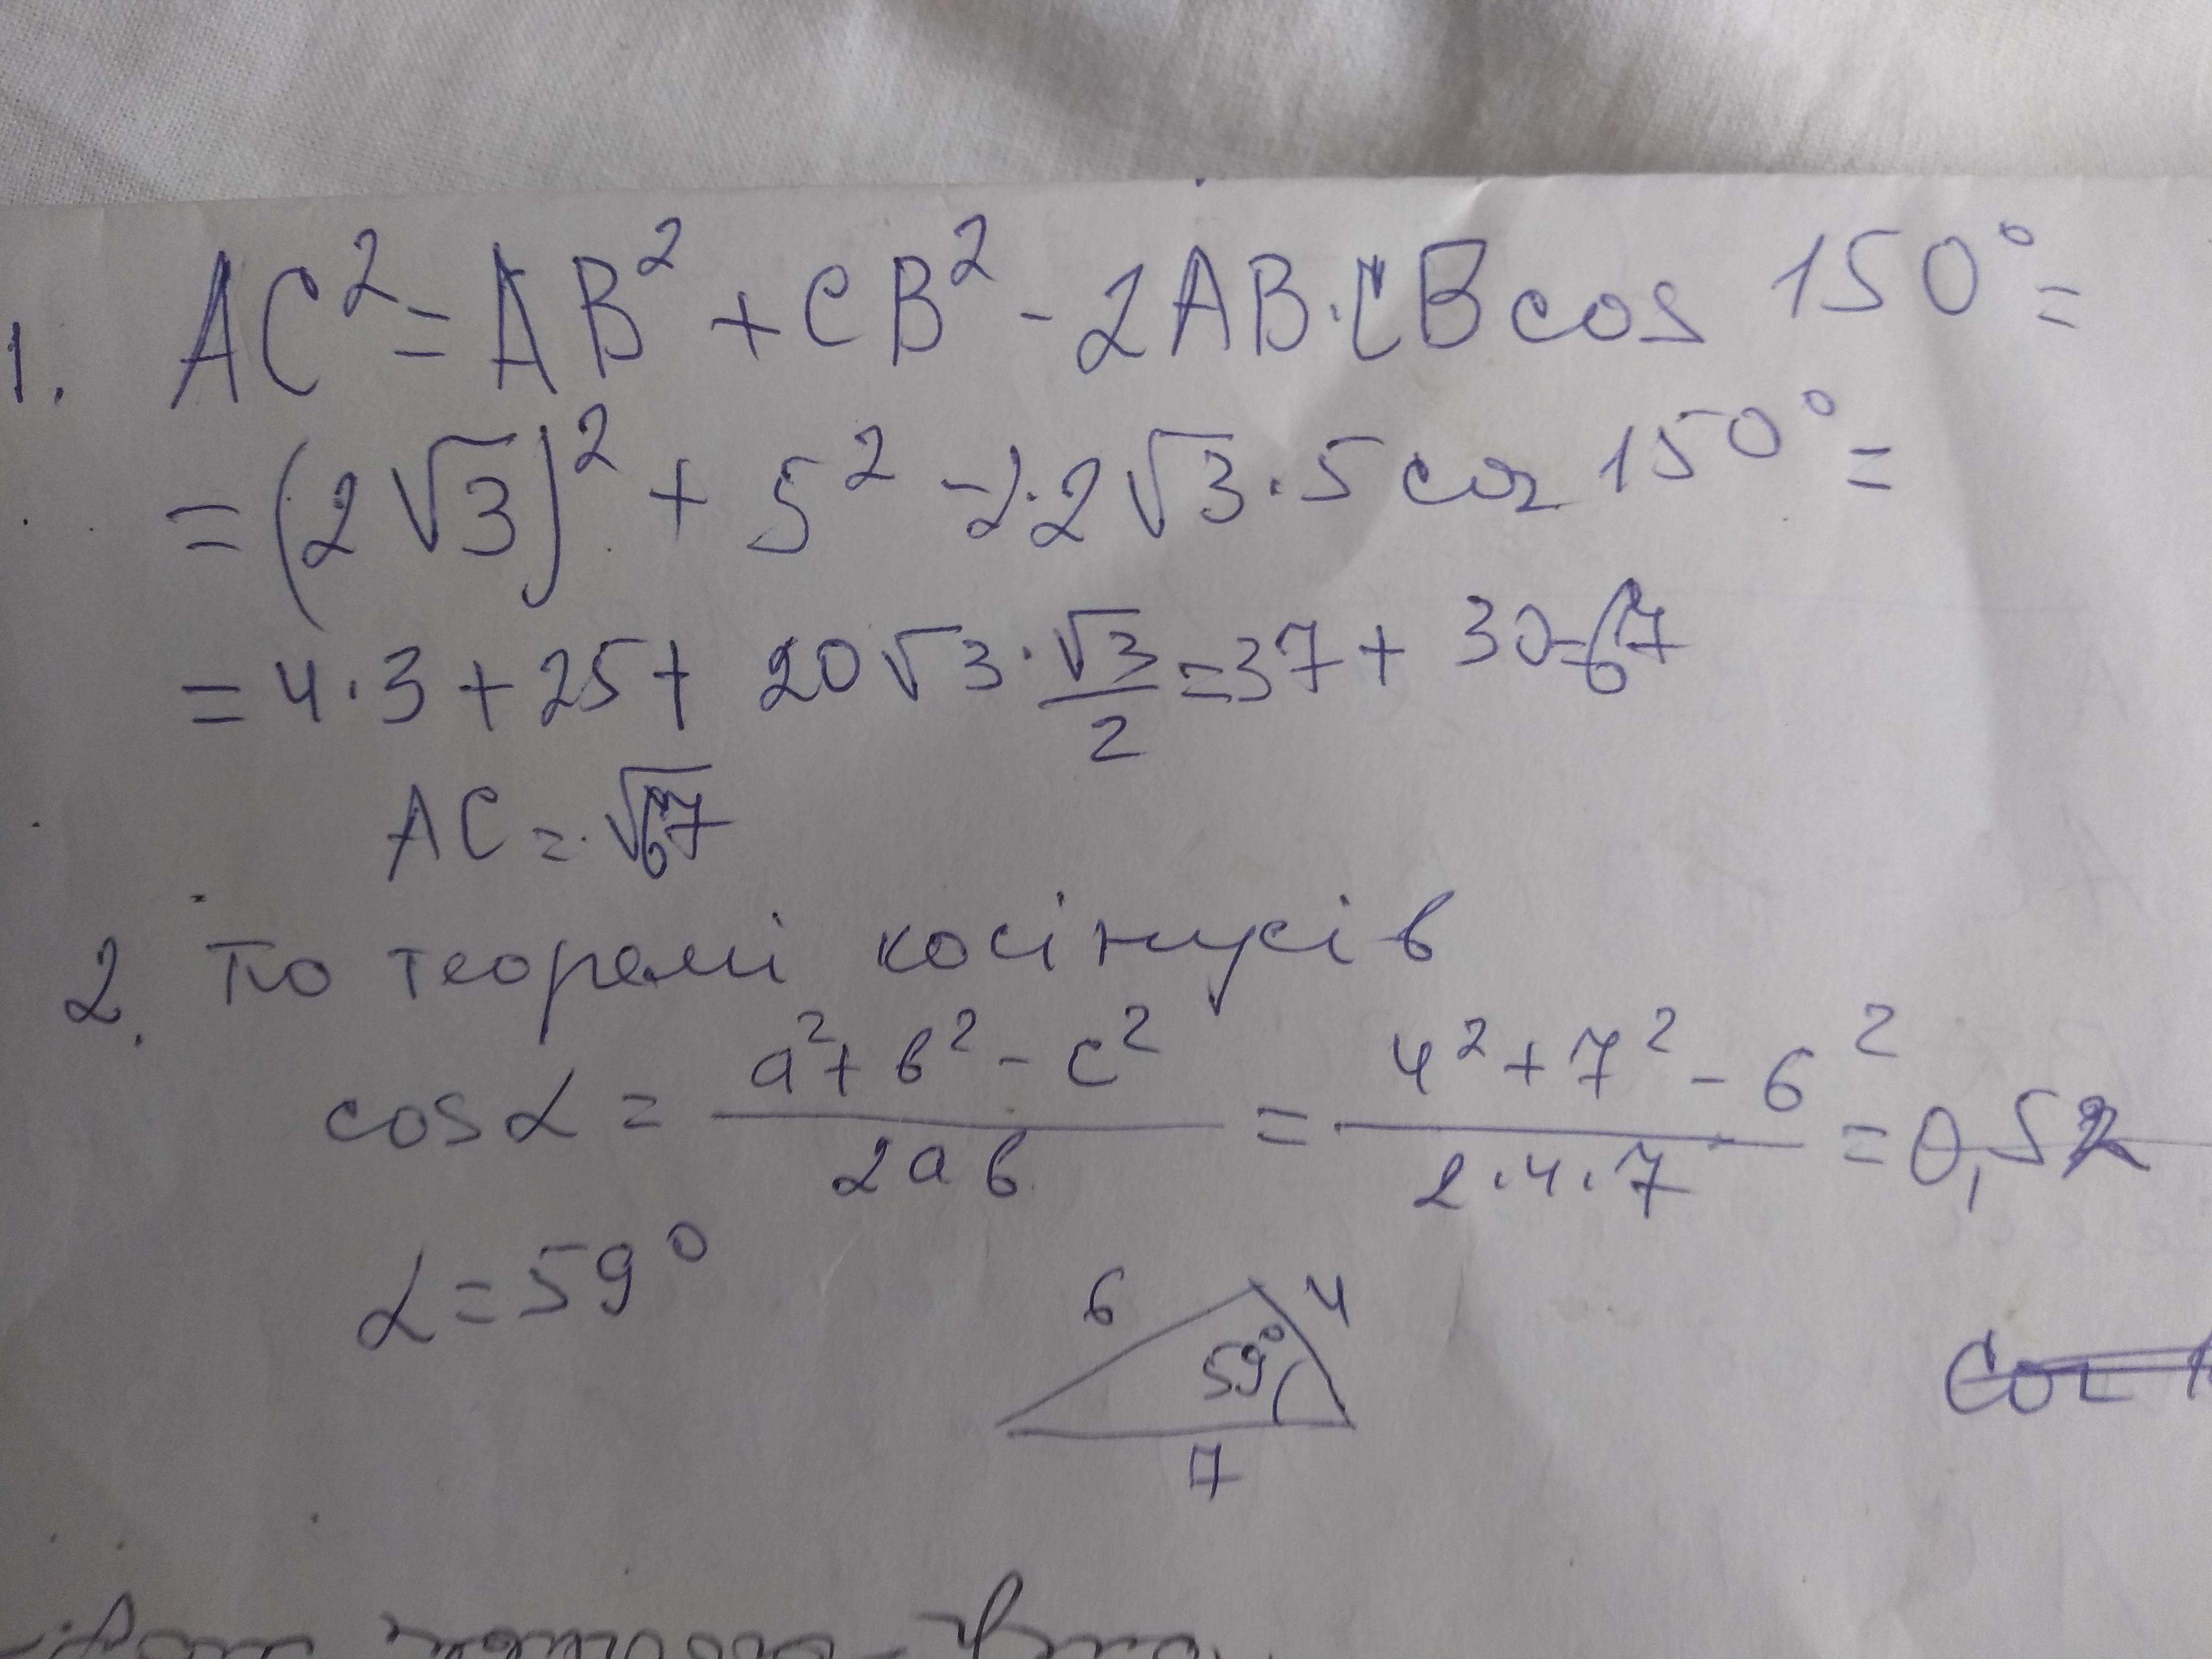 1. AC² = AB² + CB² - 2AB·CB cos 150° =
= (2√3)² + 5² - 2·2√3·5 cos 150° =
= 4·3 + 25 + 20√3·√3/2 = 37 + 30 = 67
AC = √67
2. По теоремі косінусів
cos α = (a² + b² - c²)/(2ab) = (4² + 7² - 6²)/(2·4·7) = 0,52
α = 59°
6 4
59°
7